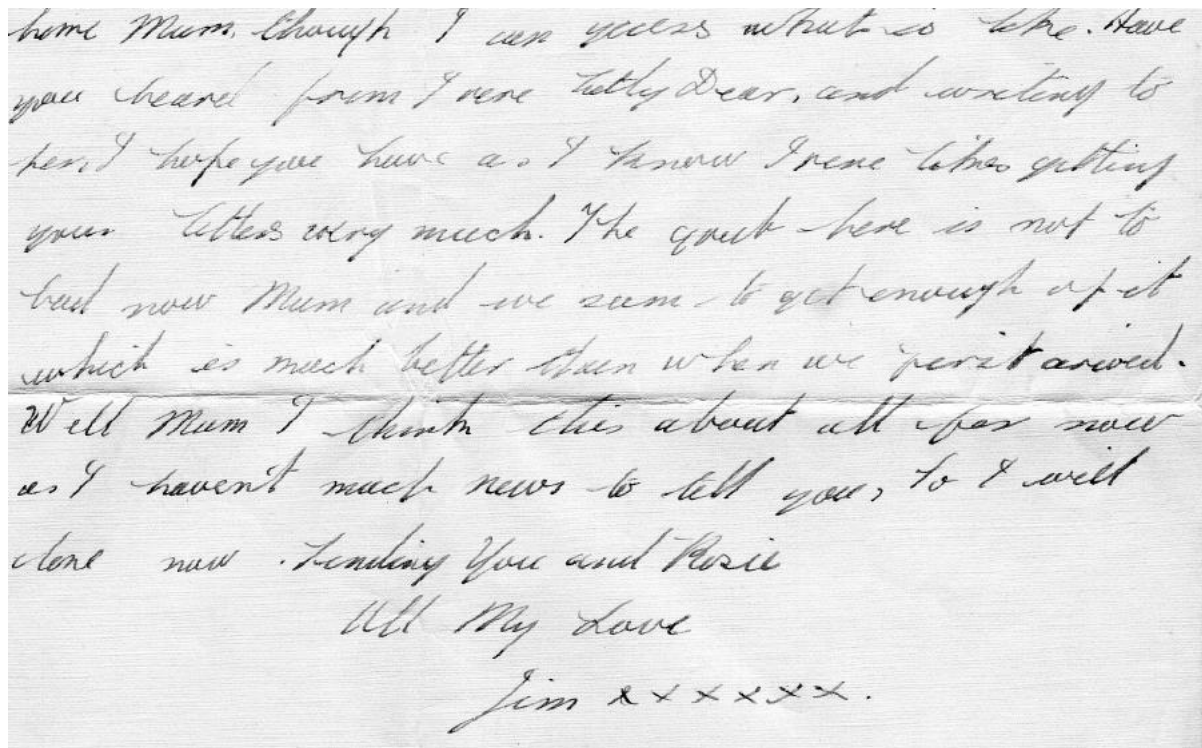 home Mum, though I can guess what is like. Have
you heard from Irene Dear, and writing to
her, I hope you have as I know Irene likes getting
your letters very much. The grub here is not to
bad now Mum and we seem to get enough of it
which is much better than when we first arived.
Well Mum I think this about all for now
as I havent much news to tell you, So I will
close now. Sending You and Rosie
All My Love
Jim xxxxxx.